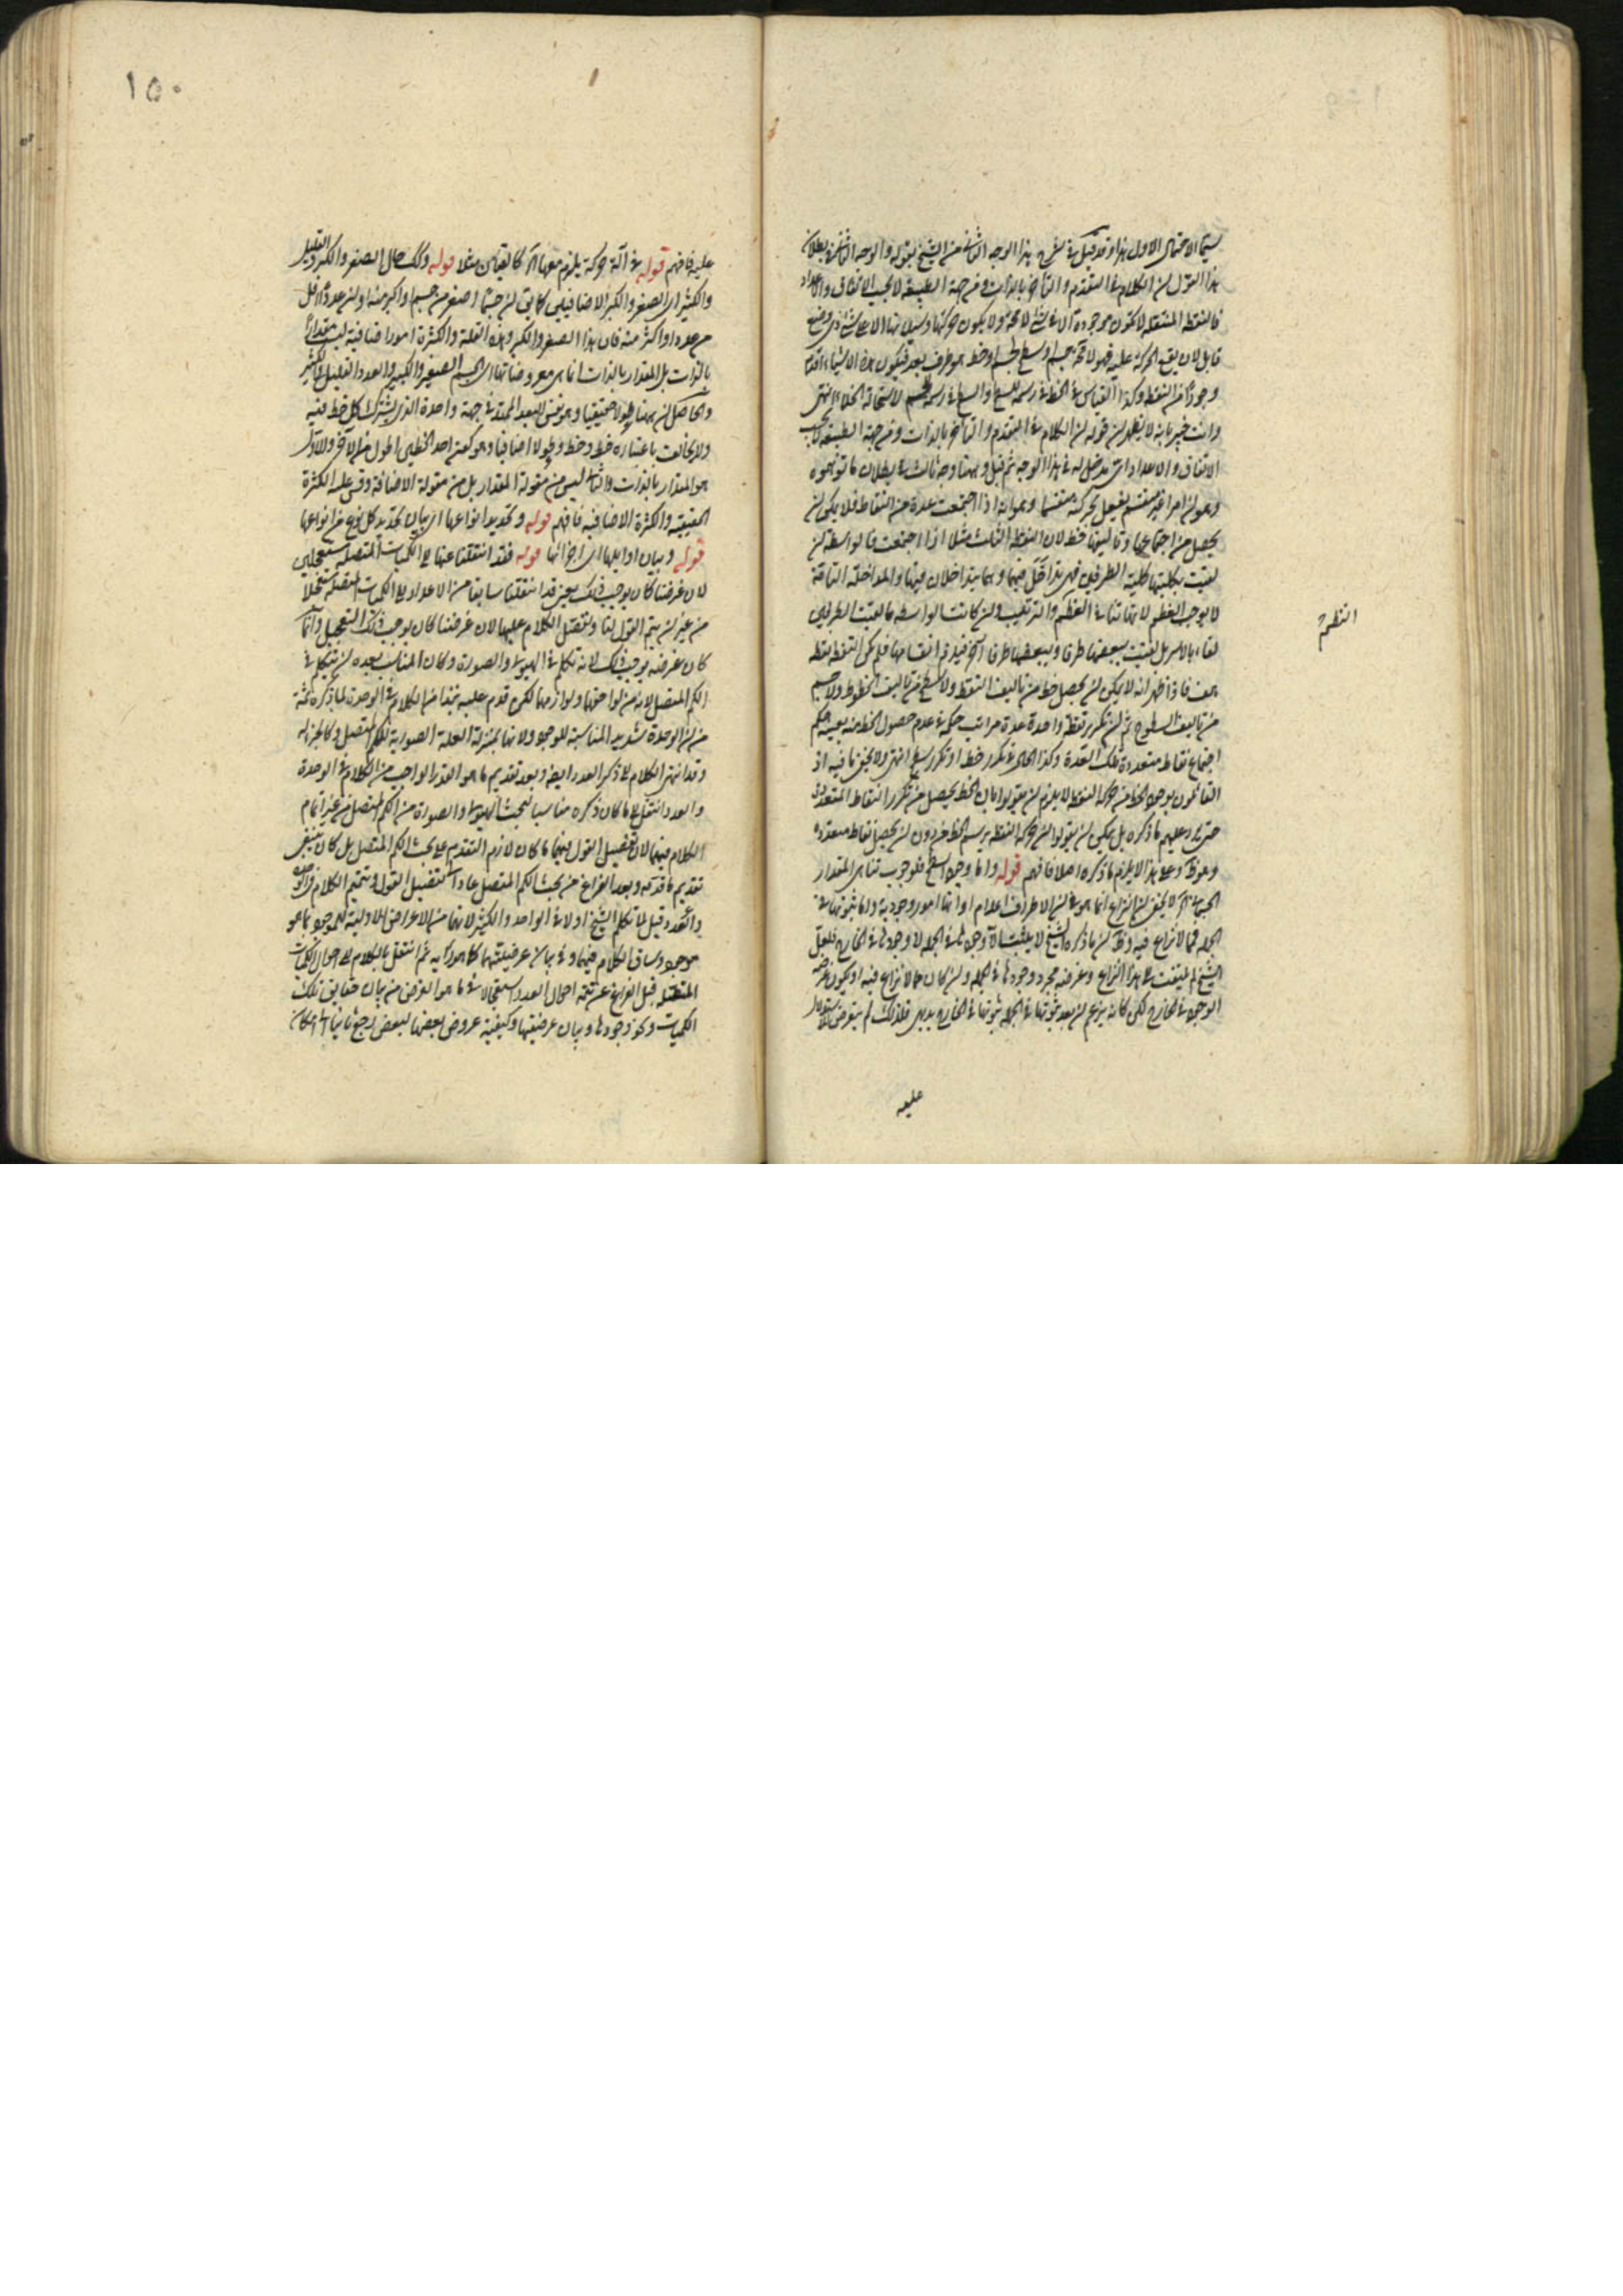 سيما الاحتمال الاول هذا وقد قيل في شرح هذا الوجه الثاني من الشيخ بقوله والوجه الثاني في بطلان
هذا القول ان الكلام في التقدم والتاخر بالذات ومن جهة الطبيعة لا بحسب الاتفاق والاعداد
فالنقطة المنتقلة لا تكون موجودة الا في شئ لا محة ولا يكون حركتها وسيلانها الا على شئ ذي وضع
قابل لان يقع الحركة عليه فهو لا محة جسم او سطح لجسم او خط هو طرف بعد فيكون هذه الاشياء اقدم
وجودا من النقطة وكذا القياس في الخط في رسمه للسطح والسطح في رسمه للجسم لاستحالة الخلاء انتهى
وانت خبير بانه لا يظهر ان قوله ان الكلام في المتقدم والتاخر بالذات ومن جهة الطبيعة لا بحسب
الاتفاق والاعداد اي مدخل له في هذا الوجه ثم قيل وههنا وجه ثالث في بطلان ما توهموه
وهو ان امرا غير منقسم يفعل بحركته منقسما وهو انه اذا اجتمعت عدة من النقاط فلا يمكن ان
يحصل من اجتماعها وتاليفها خط لان النقط الثلث مثلا اذا اجتمعت فالواسطة ان
لقيت بكليتها كلية الطرفين فهي تداخل فيهما وهما يتداخلان فيها والمداخلة التامة
لا يوجب العظم لانها تنافي العظم والترتيب وان كانت الواسطة ما لقيت الطرفين
لقاء بالاسر بل لقيت ببعضها طرفا وببعضها طرفا آخر فيلزم انقسامها فلم يكن النقطة نقطة
هف فاذا ظهر انه لا يمكن ان يحصل خط من تاليف النقط ولا سطح من تاليف الخطوط ولا جسم
من تاليف السطوح ثم ان تكرر نقطة واحدة عدة مراتب حكمه في عدم حصول الخط منه بعينه حكم
اجتماع نقاط متعددة تلك العدة وكذا الحال في تكرر خط او تكرر سطح انتهى ولا يخفى ما فيه اذ
القائلون بوجود الخط من حركة النقطة لا يلزم ان يقولوا بان الخط يحصل من تكرر النقاط المتعددة
حتى يرد عليهم ما ذكره بل يمكن ان يقولوا ان حركة النقطة يرسم الخط من دون ان يحصل نقاط متعددة
وهو ظ وعلى هذا لا يلزم ما ذكره اصلا فافهم قوله واما وجود السطح فلوجوب تناهي المقدار
الجسماني آه لا يخفى ان النزاع انما هو في ان الاطراف اعدام او انها امور وجودية واما ثبوتها في
الجملة فمما لا نزاع فيه وظ ان ما ذكره الشيخ لا يثبت الا وجودها في الجملة لا وجودها في الخارج فلعل
الشيخ لم يلتفت الى هذا النزاع وغرضه مجرد وجودها في الجملة وان كان مما لا نزاع فيه او يكون غرضه
الوجود في الخارج لكن كانه يزعم ان بعد ثبوتها في الجملة ثبوتها في الخارج بديهي فلذلك لم يتعرض للاستدلال
عليه
١٥٠
عليه فافهم قوله في آلة حركة يلزم معها آه كالقپان مثلا قوله وكك حال الصغر والكبر والقليل
والكثير اي الصغر والكبر الاضافيين كما يق ان جسما اصغر من جسم او اكبر منه او ان عددا اقل
من عدد او اكثر منه فان هذا الصغر والكبر وهذه القلة والكثرة امور اضافية ليست مقدارا
بالذات بل المقدار بالذات انما هي معروضاتها اي الجسم الصغير والكبير والعدد القليل والكثير
والحاصل ان ههنا طولا حقيقيا وهو نفس البعد الممتد في جهة واحدة الذي يشترك كل خط فيه
ولا يتخالف باعتباره خط وخط وطولا اضافيا وهو كون احد الخطين اطول من الآخر والاول
هو المقدار بالذات والثاني ليس من مقولة المقدار بل من مقولة الاضافة وقس عليه الكثرة
الحقيقية والكثرة الاضافية فافهم قوله وتحديد انواعها اي بيان تحديد كل نوع من انواعها
قوله وبيان اوايلها اي اجزائها قوله فقد انتقلنا عنها الى الكميات المتصلة مستعجلين
لان غرضنا كان يوجب ذلك يعني قد انتقلنا سابقا من الاعداد الى الكميات المتصلة مستعجلا
من غير ان يتم القول لنا ونفصل الكلام عليها لان غرضنا كان يوجب ذلك التعجيل وانما
كان غرضه يوجب ذلك لانه تكلم في الهيولى والصورة وكان المناسب بعده ان يتكلم في
الكم المتصل لانه من لواحقها ولوازمها لكن قدم عليه نبذا من الكلام في الوحدة لما ذكره ثمة
من ان الوحدة شديد المناسبة للوجود ولانها بمنزلة العلة الصورية للكم المتصل وكالجزء له
وقد انتهى الكلام الى ذكر العدد ايضا وبعد تقديم ما هو القدر الواجب من الكلام في الوحدة
والعدد انتقل الى ما كان ذكره مناسبا لبحث الهيولى والصورة من الكم المتصل من غير اتمام
الكلام فيهما لان تفصيل القول فيهما ما كان لازم التقدم على بحث الكم المتصل بل كان ينبغي
تقديم ما قدمه وبعد الفراغ من بحث الكم المتصل عاد الى تفصيل القول وتتميم الكلام في الوحدة
والعدد وقيل لما تكلم الشيخ اولا في الواحد والكثير لانهما من الاعراض الاولية للموجود بما هو
موجود وساق الكلام فيهما وفي بيان عرضيتهما كما هو دابه ثم انتقل بالكلام الى احوال الكميات
المتصلة قبل الفراغ عن تتمة احوال العدد استعجالا في ما هو الغرض من بيان حقايق تلك
الكميات ونحو وجودها وبيان عرضيتها وكيفية عروض بعضها لبعض رجع ثانيا الى ما كان